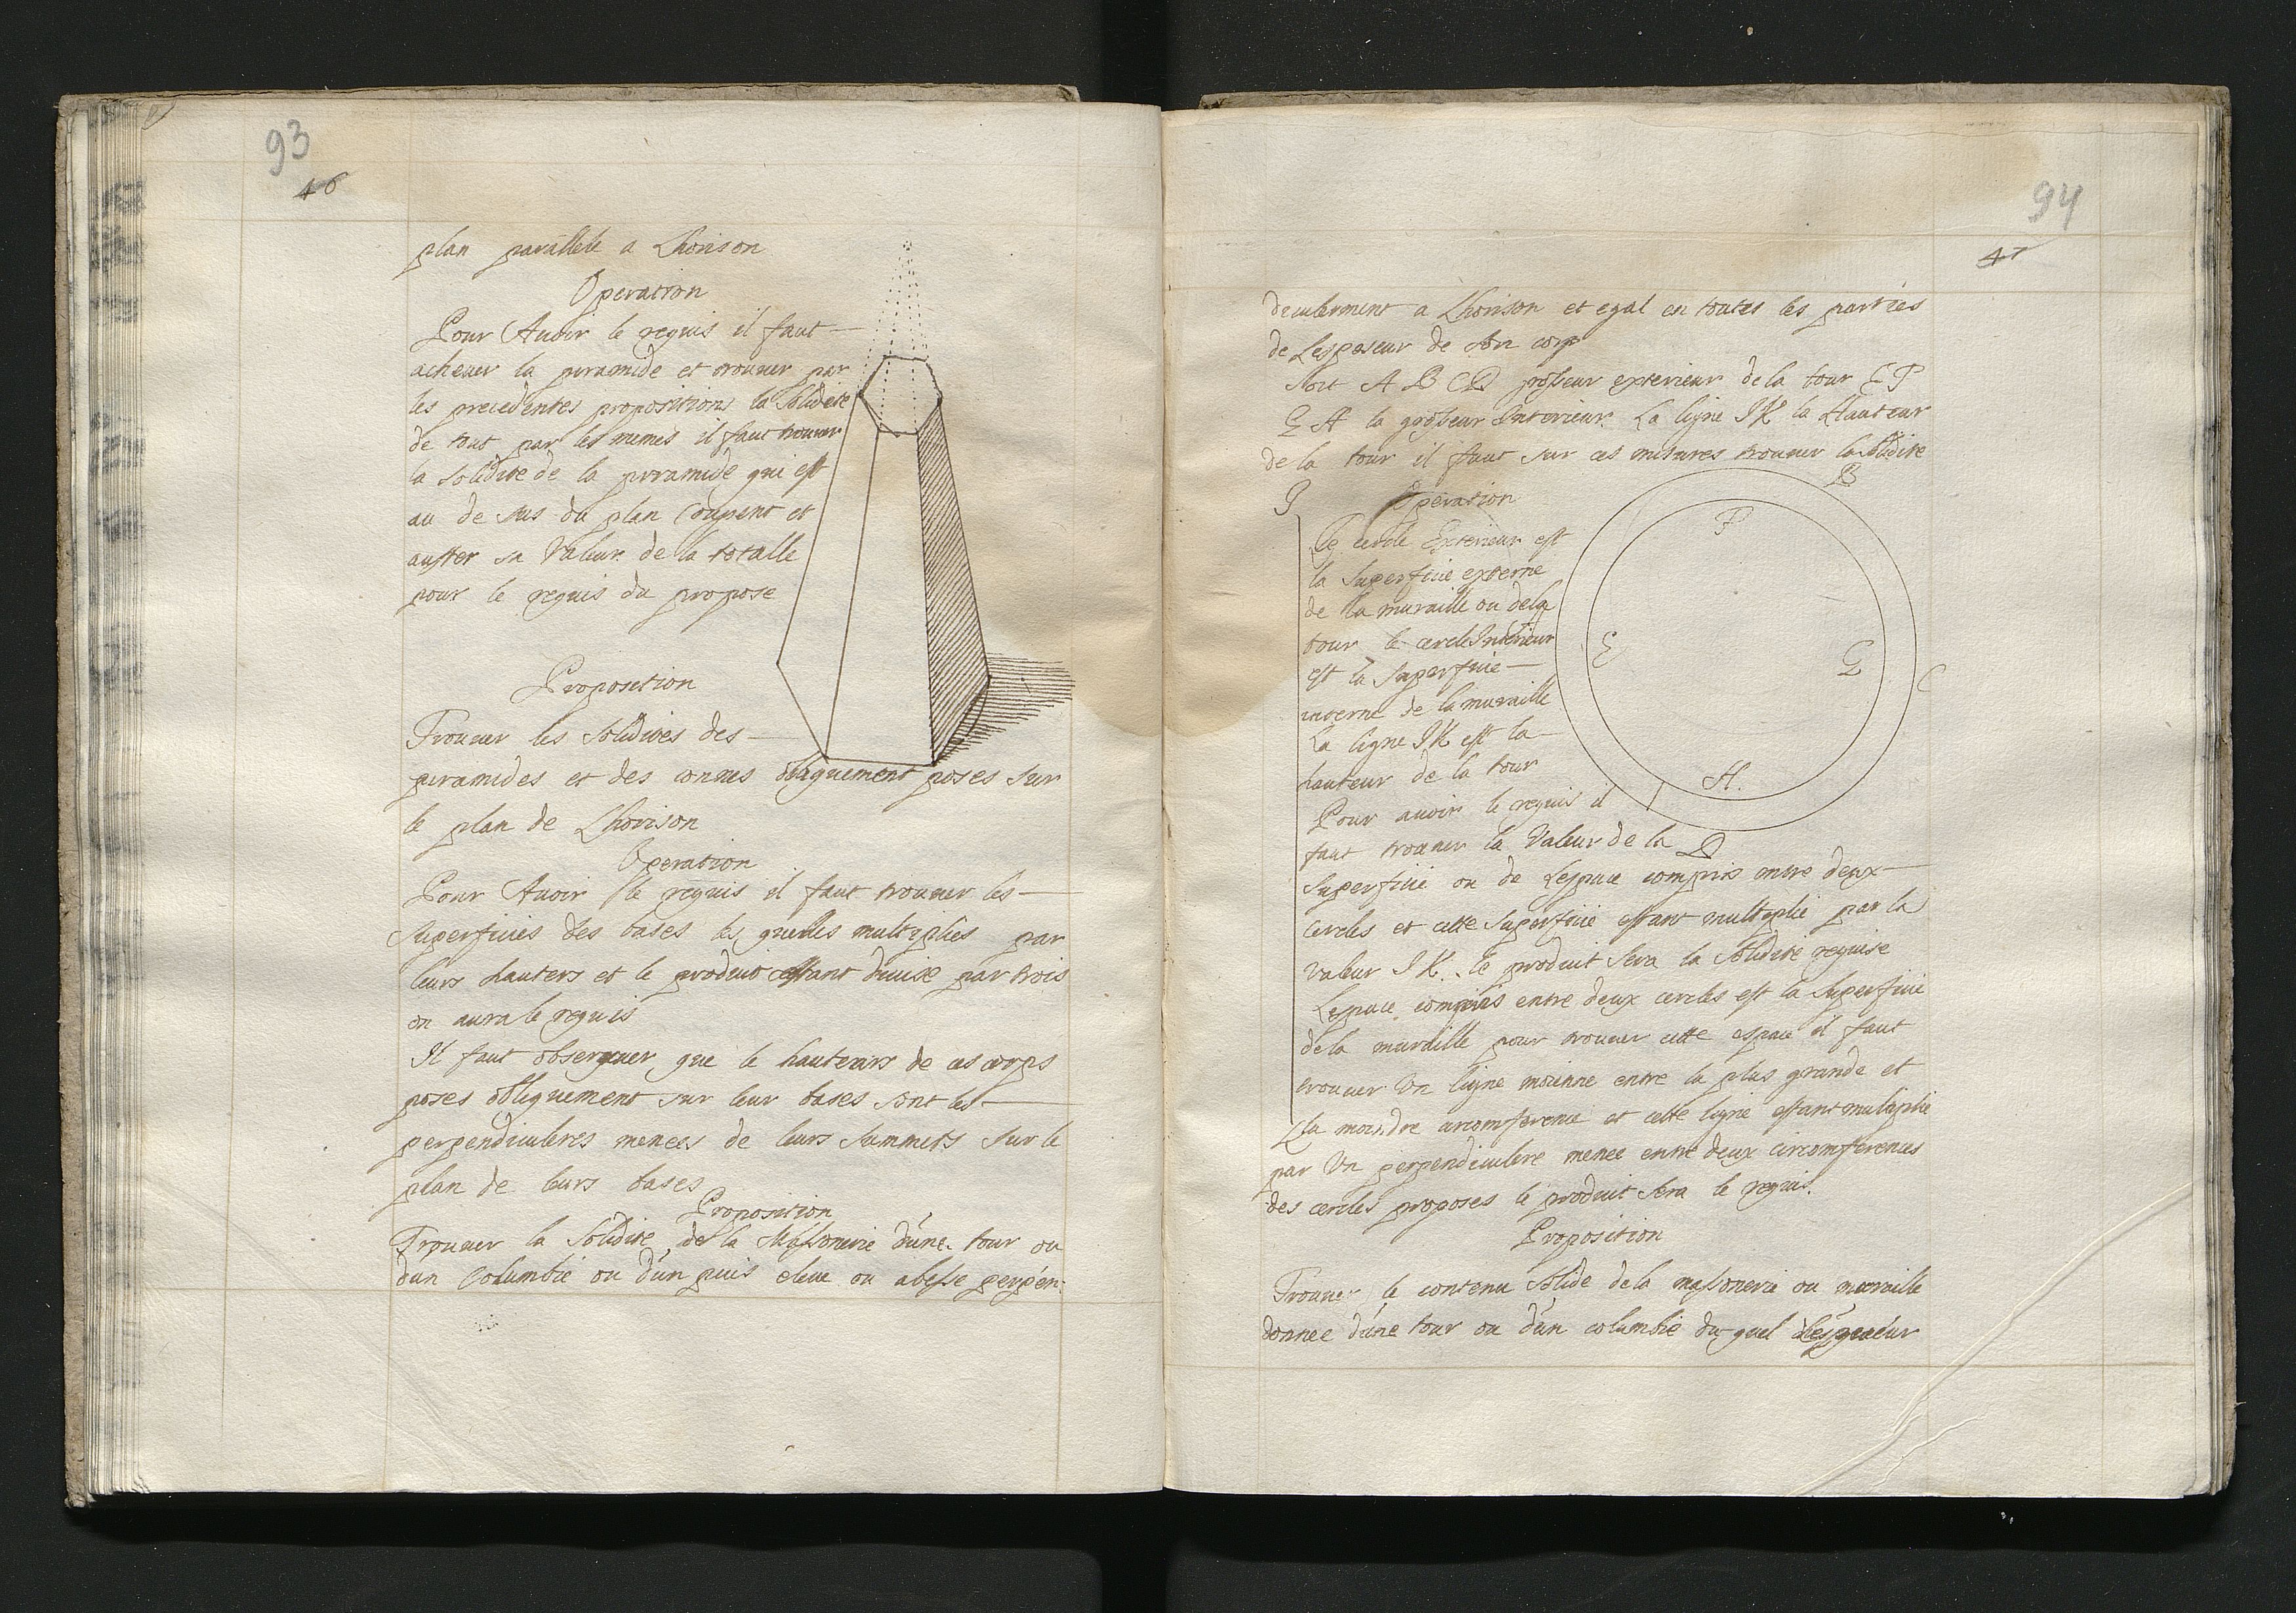 93
46
plan parallele a Lhorison
Operation
Pour Avoir le requis il faut
achever la piramide et trouuer par
les precedentes propositions la Solidite
de tout par les memes il faut trouuer
la solidite de la piramide qui est
au de sus du plan Coupent et
auster sa Valeur de la totalle
pour le requis du propose
Proposition
Trouuer les solidites des
piramides et des connes obliquement poses sur
le plan de Lhorison
Operation
Pour Avoir le requis il faut trouuer les
Superficies des bases les quelles multiplies par
leurs hauters et le produit estant diuise par trois
on aura le requis
Il faut obseruer que le hauteurs de ces corps
poses obliquement sur leur bases sont les
perpendiculeres menees de leurs summets sur le
plan de leurs bases
Proposition
Trouuer la Solidite de la Massonerie d'une tour ou
d'un Columbie ou d'un puis eleue ou abesse perpen:
94
47
deculerment a Lhorison et egal en toutes les parties
de Lespeseur de son corp
Soit A B C D grosseur exterieur de la tour E F
G H la grosseur Interieur La ligne I K la Hauteur
de la tour il faut sur ces mesures trouuer la solidite
B
I
Operation
F
Le cercle Exterieur est
la Superficie externe
de la muraille ou dela
tour le cercle Interieur
E
G
C
est la Superficie
interne de la muraille
La ligne I K est la
hauteur de la tour
H.
Pour auoir le requis il
faut trouuer la Valeur de la
D
Superficie ou de Lespace compris entre deux
Cercles et cette Superficie estant multiplie par la
Valeur I K. le produit Sera la Solidite requise
Lespace compris entre deux cercles est la Superficie
dela muraille pour trouuer cette espace il faut
trouuer Un ligne moienne entre la plus grande et
la moindre circomference et cette ligne estant multiplie
par Un perpendiculere menee entre deux circomferences
des cercles proposes le produit Sera le requis.
Proposition
Trouuer le contenu Solide dela massonerie ou muraille
donnee d'une tour ou d'un columbie du quel Lespeseur